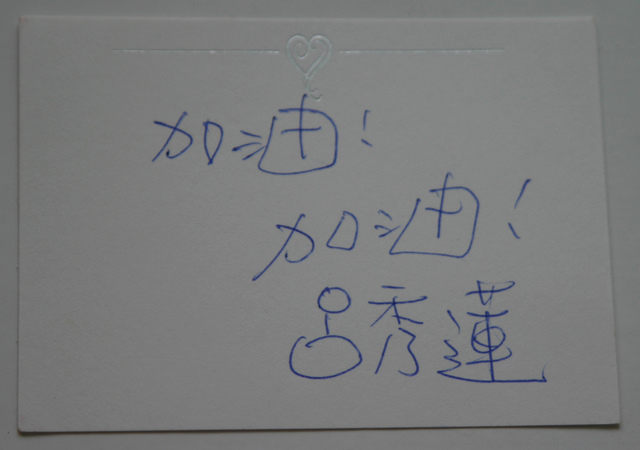 加油!
加油!
呂秀蓮